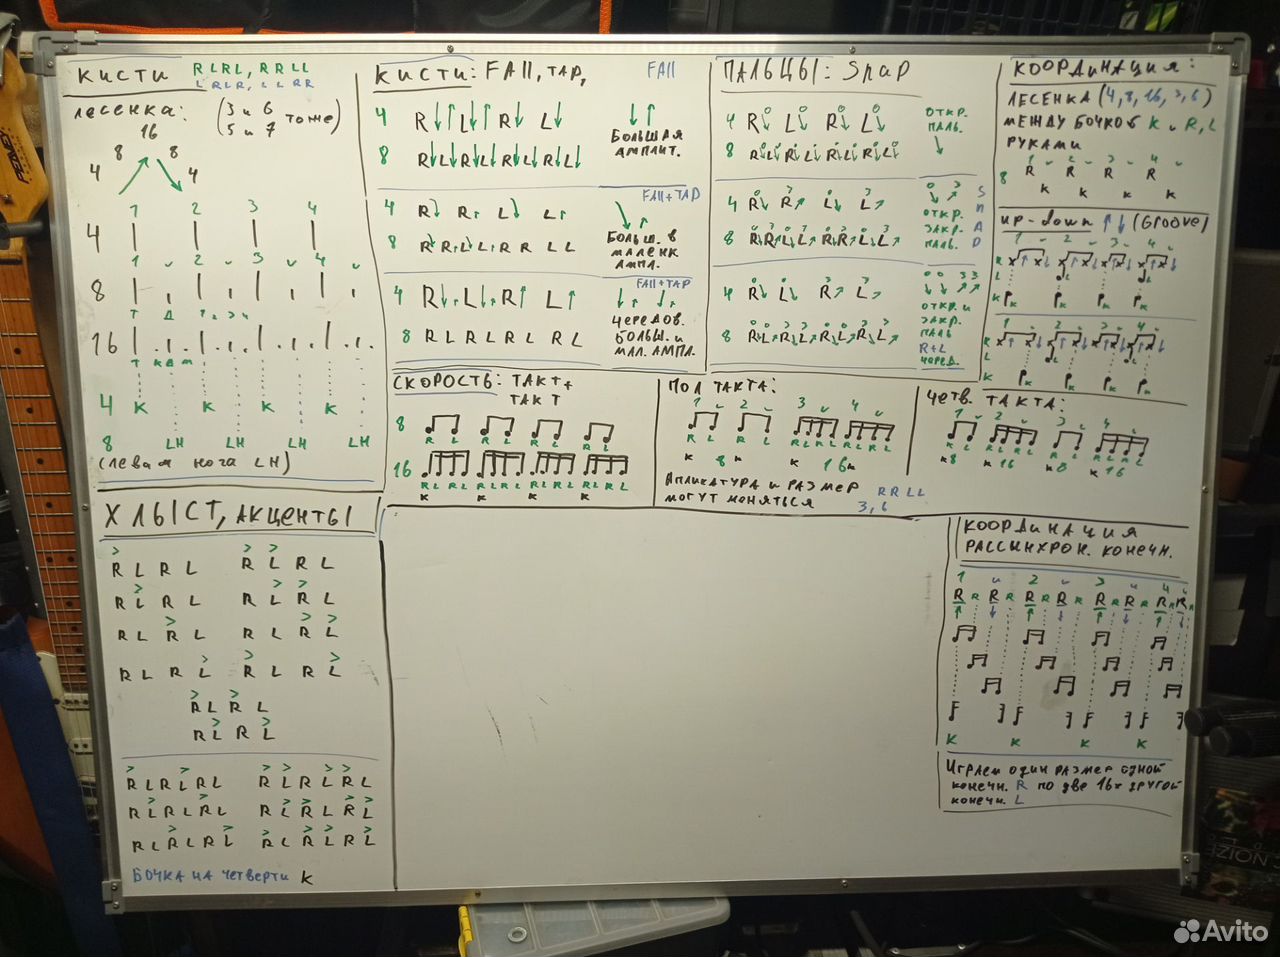 КИСТИ RLRL, RRLL
LRLR, LLRR
ЛЕСЕНКА: (3 и 6
5 и 7 тоже)
16
8 8
4 4
1 2 3 4
4
1 2 3 4
8
16
4 K K K K
8 LH LH LH LH
(ЛЕВАЯ НОГА LH)
КИСТИ: FALL, TAP, FALL
4 R L R L
8 R L R L R L R L
БОЛЬШАЯ
АМПЛИТ.
FALL+TAP
4 R R L L
8 R R L L R R L L
БОЛЬШ. В
МАЛЕНК
АМПЛ.
FALL+TAP
4 R L R L
8 R L R L R L R L
ЧЕРЕДОВ.
БОЛЬШ. И
МАЛ. АМПЛ.
ПАЛЬЦЫ: SNAP
4 R L R L
8 R L R L R L R L
ОТКР.
ПАЛЬ.
4 R R L L
8 R R L L R R L L
ОТКР.
ЗАКР.
ПАЛЬ.
SNAP
4 R L R L
8 R L R L R L R L
ОТКР. И
ЗАКР.
ПАЛЬ
R+L
ЧЕРЕД.
КООРДИНАЦИЯ:
ЛЕСЕНКА (4, 8, 16, 3, 6)
МЕЖДУ БОЧКОЙ K и R, L
РУКАМИ
1 2 3 4
8 R R R R
K K K K
up-down ↑↓ (Groove)
1 2 3 4
R
L
K K K K K
1 2 3 4
R
L
K K K K K
СКОРОСТЬ: ТАКТ+
ТАКТ
8
R L R L R L R L
16
RLRL RLRL RLRL RLRL
K K K K
ПОЛ ТАКТА:
1 2 3 4
R L R L RLRL RLRL
K 8 K K 16 K
АПЛИКАТУРА И РАЗМЕР RRLL
МОГУТ МЕНЯТЬСЯ 3, 6
ЧЕТВ. ТАКТА:
1 2 3 4
R L RLRL R L RLRL
K 8 K 16 K 8 K 16
ХЛЫСТ, АКЦЕНТЫ
R L R L R L R L
R L R L R L R L
R L R L R L R L
R L R L R L R L
R L R L
R L R L
R L R L R L R L R L R L
R L R L R L R L R L R L
R L R L R L R L R L R L
БОЧКА НА ЧЕТВЕРТИ K
КООРДИНАЦИЯ
РАССЫНХРОН. КОНЕЧН.
1 2 3 4
R R R R R R R R
K K K K
ИГРАЕМ ОДИН РАЗМЕР ОДНОЙ
КОНЕЧН. R ПО ДВЕ 16х ДРУГОЙ
КОНЕЧН. L
PEAVEY
Avito